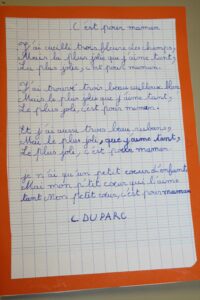 C'est pour maman
J'ai cueilli trois fleurs des champs,
Mais la plus jolie que j'aime tant,
La plus jolie, c'est pour maman.
J'ai trouvé trois beau cailloux blanc
Mais le plus jolie que j'aime tant,
Le plus jolie, c'est pour maman.
Et j'ai aussi trois beau rubans,
Mais le plus joli, que j'aime tant,
Le plus joli, c'est pour maman.
je n'ai qu'un petit cœur d'enfant
Mai mon p'tit cœur qui l'aime
tant Mon petit cœur, c'est pour maman
C DUPARC